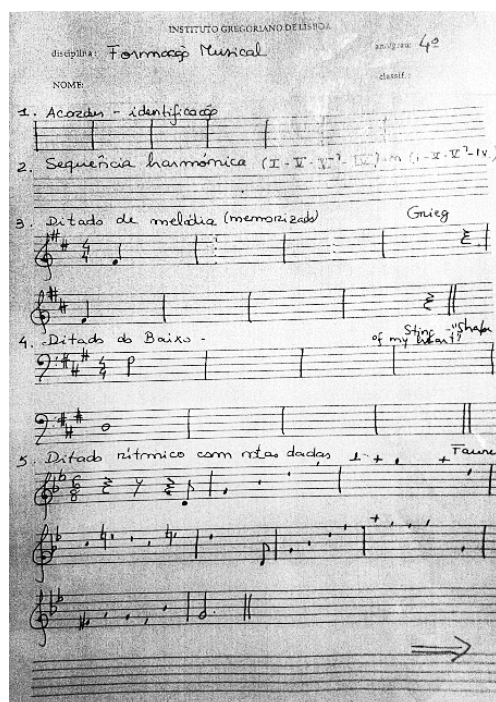 INSTITUTO GREGORIANO DE LISBOA
disciplina: Formação Musical ano/grau: 4º
NOME: classif.:
1. Acordes - identificação
2. Sequência harmónica (I - V -
3. Ditado de melodia (memorizado) Grieg
4. Ditado do Baixo - Sting - "Shape
of my heart"
5. Ditado rítmico com notas dadas Faure